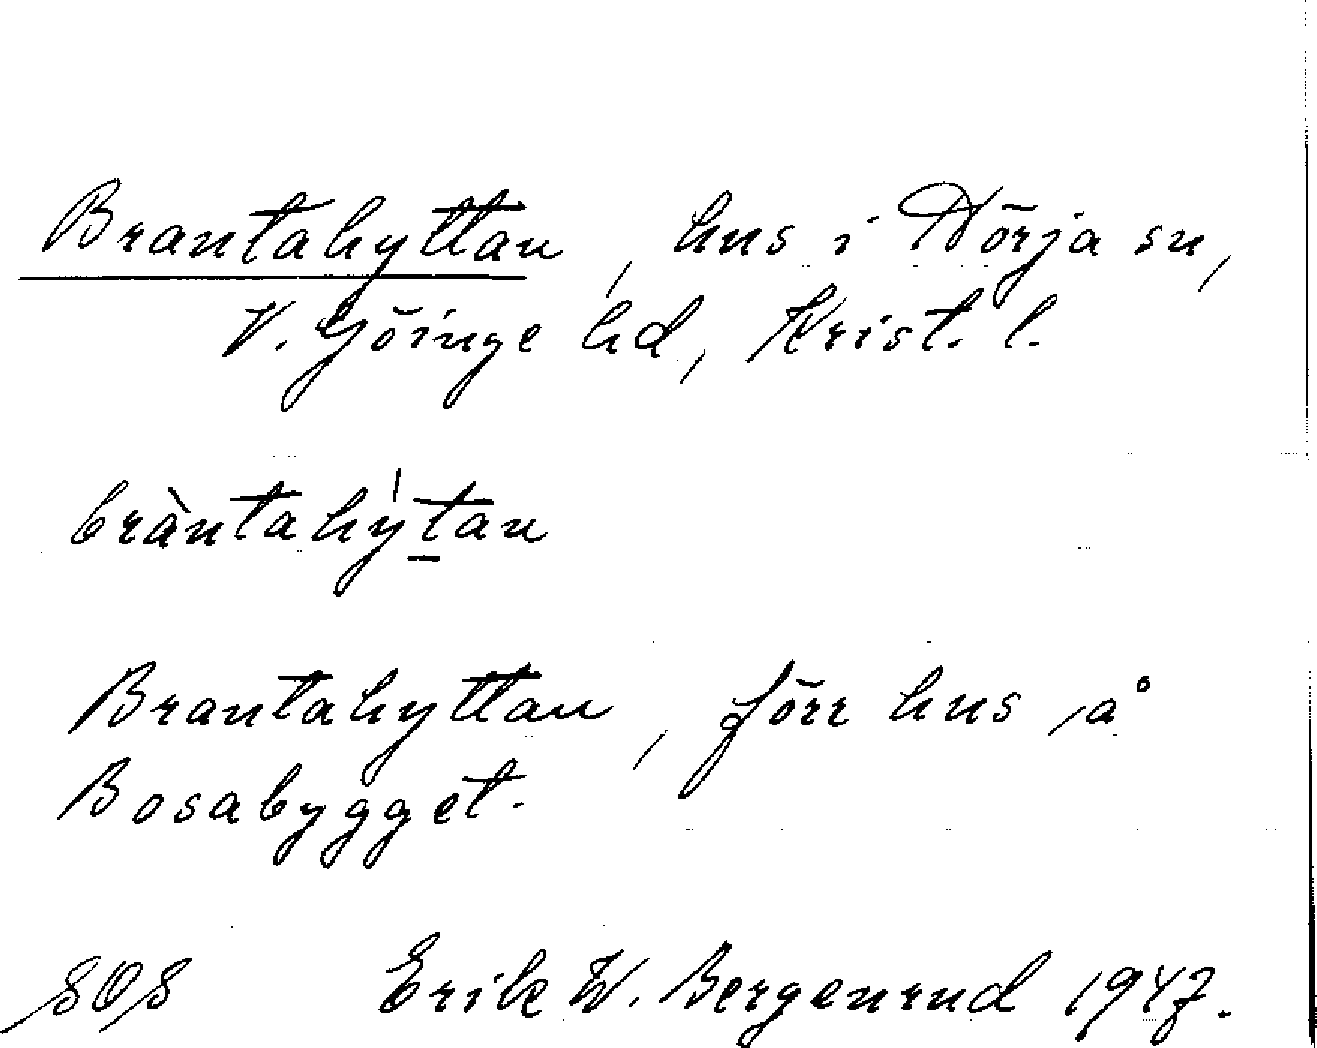 Brantahyttan, hus i Nörja sn,
V. Göinge hd, Krist. l.
bràntahýtan
Brantahyttan, förr hus på
Bosabygget.
SOS Erik W. Bergenrud 1947.